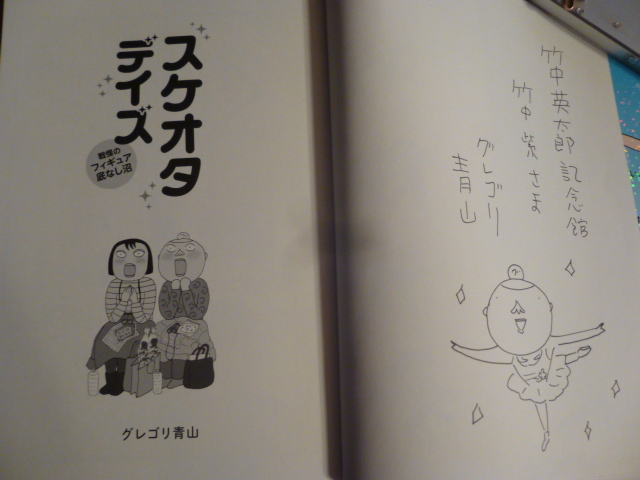 スケオタ
デイズ
戦慄の
フィギュア
底なし沼
グレゴリ青山
竹中英太郎記念館
竹中紫さま
グレゴリ
青山